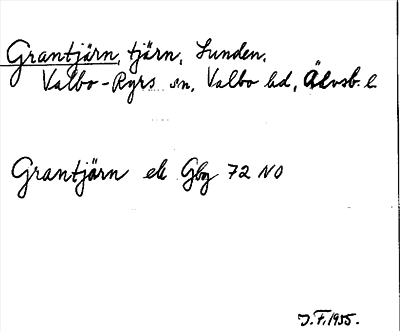 Grantjärn, tjärn, Sunden,
Valbo-Ryrs sn, Valbo hd, Älvsb. l.
Grantjärn ek Gbg 72 NO
J.F. 1955.